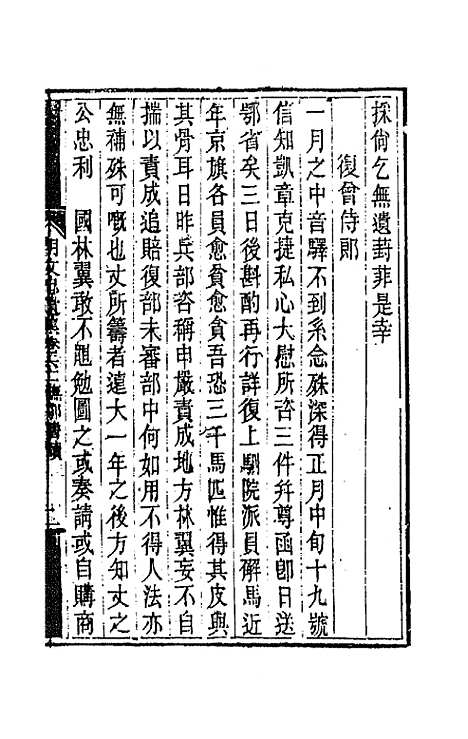 採尙乞無遺葑菲是幸
復曾侍郞
一月之中音驛不到系念殊深得正月中旬十九號
信知凱章克捷私心大慰所咨三件幷尊函卽日送
鄂省矣三日後斟酌再行詳復上駟院派員解馬近
年京旗各員愈貧愈貪吾恐三千馬匹惟得其皮與
其骨耳日昨兵部咨稱申嚴責成地方林翼妄不自
揣以責成追賠復部未審部中何如用不得人法亦
無補殊可嘅也丈所籌者遠大一年之後方知丈之
公忠利　國林翼敢不黽勉圖之或奏請或自購商